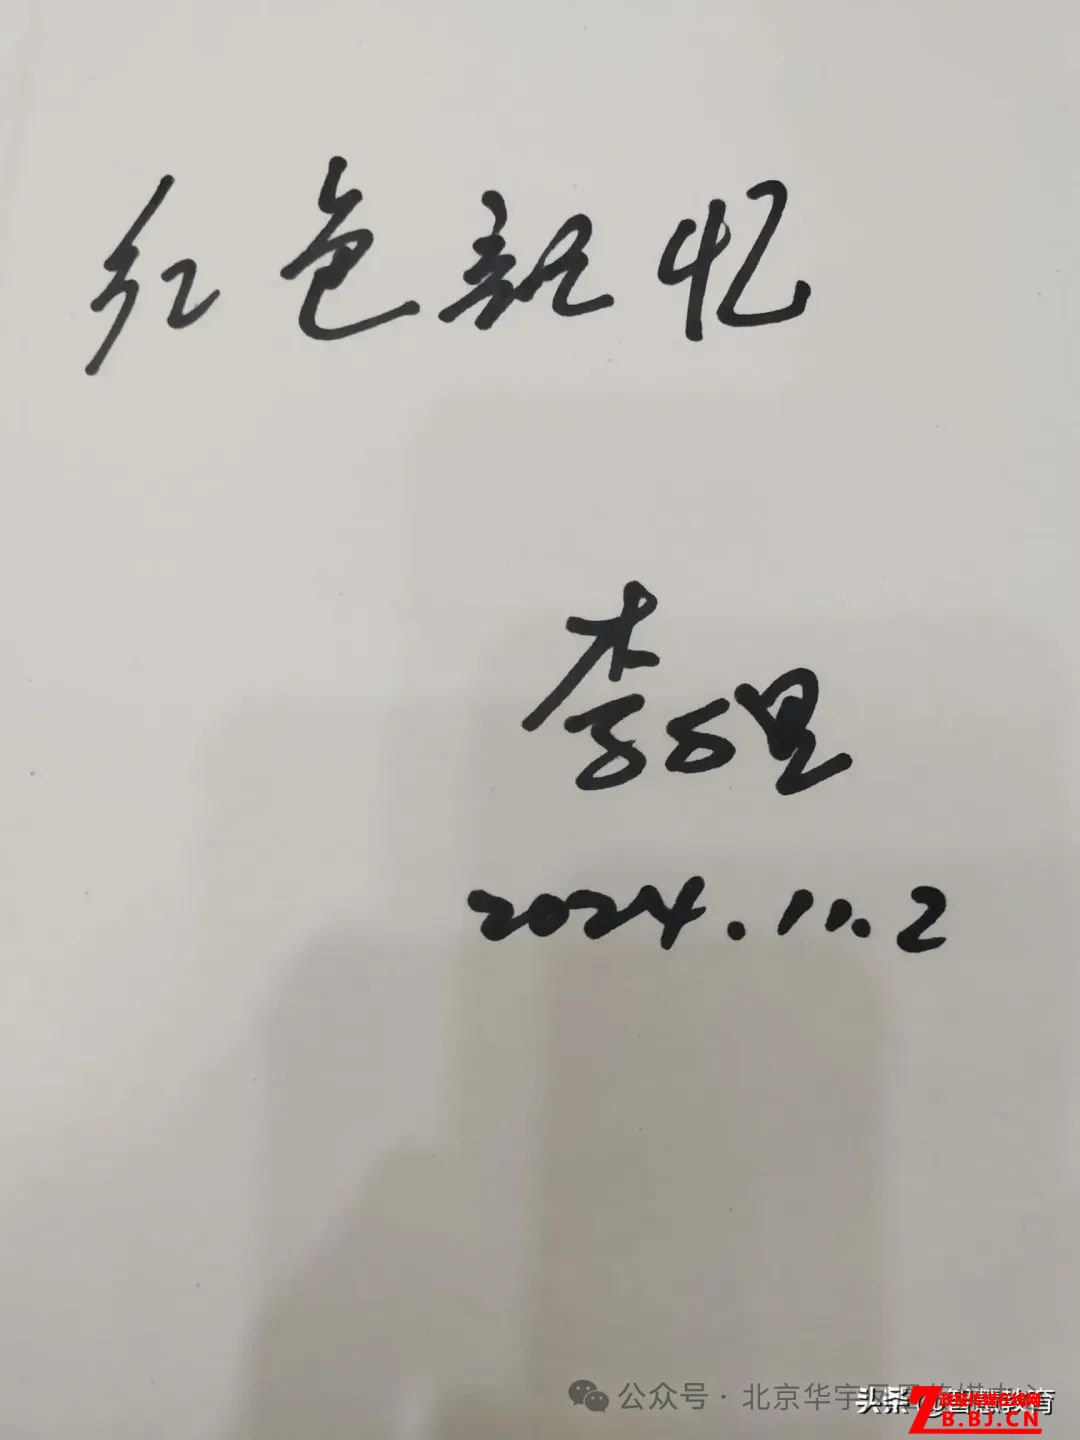 红色記忆
李
2024.11.2
公众号·北京华宇
头条
Z.B.BJ.CN